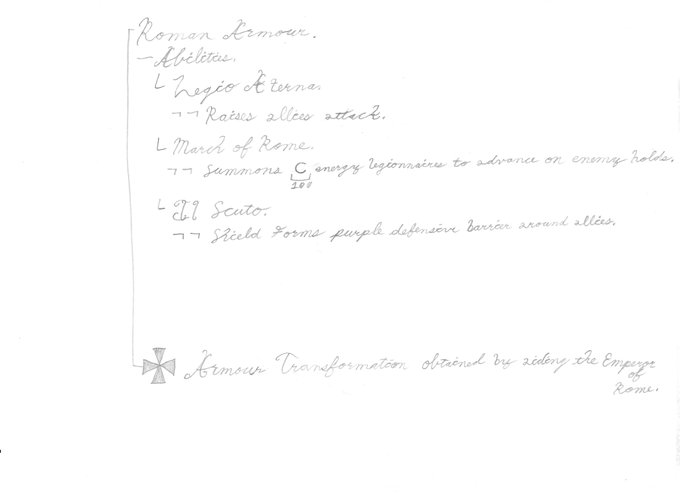 Roman Armour.
— Abilities.
Legio Æterna.
¬¬ Raises allies attack.
March of Rome.
¬¬ Summons C energy legionnaires to advance on enemy holds.
100
Il Scuto.
¬¬ Shield Forms purple defensive barrier around allies.
Armour Transformation obtained by aiding the Emperor
of
Rome.